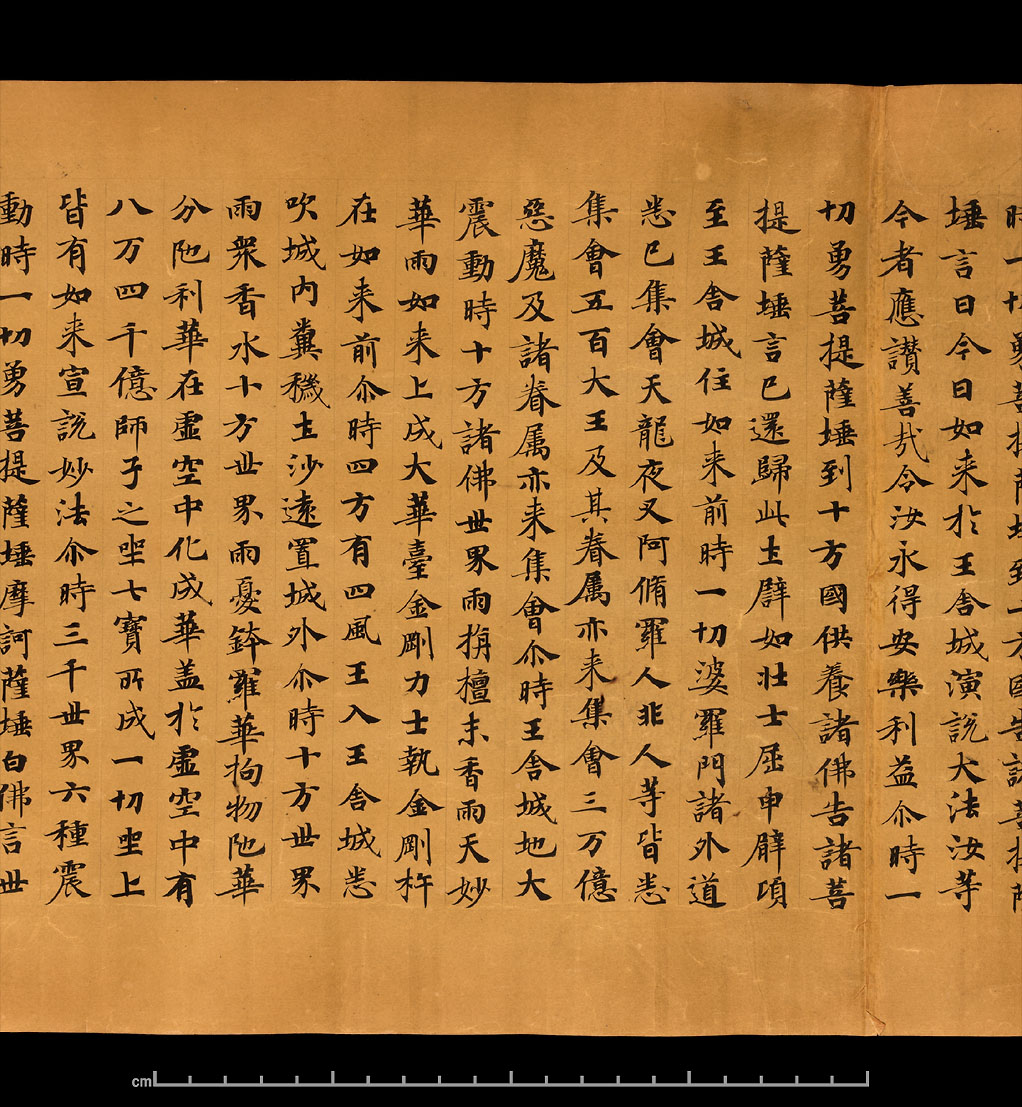 時一切勇菩提薩埵到十方國告諸菩提薩
埵言日今日如来於王舍城演說大法汝等
今者應讚善㢤令汝永得安樂利益尒時一
切勇菩提薩埵到十方國供養諸佛告諸菩
提薩埵言已還歸此土辟如壯士屈申臂項
至王舍城住如来前時一切婆羅門諸外道
悉已集會天龍夜叉阿脩羅人非人等皆悉
集會五百大王及其眷属亦来集會三万億
惡魔及諸眷属亦来集會尒時王舍城地大
震動時十方諸佛世界雨栴檀末香雨天妙
華雨如来上成大華臺金剛力士執金剛杵
在如来前尒時四方有四風王入王舍城悉
吹城内糞穢土沙遠置城外尒時十方世界
雨衆香水十方世界雨憂鉢羅華拘物陁華
分陁利華在虛空中化成華盖於虛空中有
八万四千億師子之坐七寶所成一切坐上
皆有如来宣說妙法尒時三千世界六種震
動時一切勇菩提薩埵摩訶薩埵白佛言世